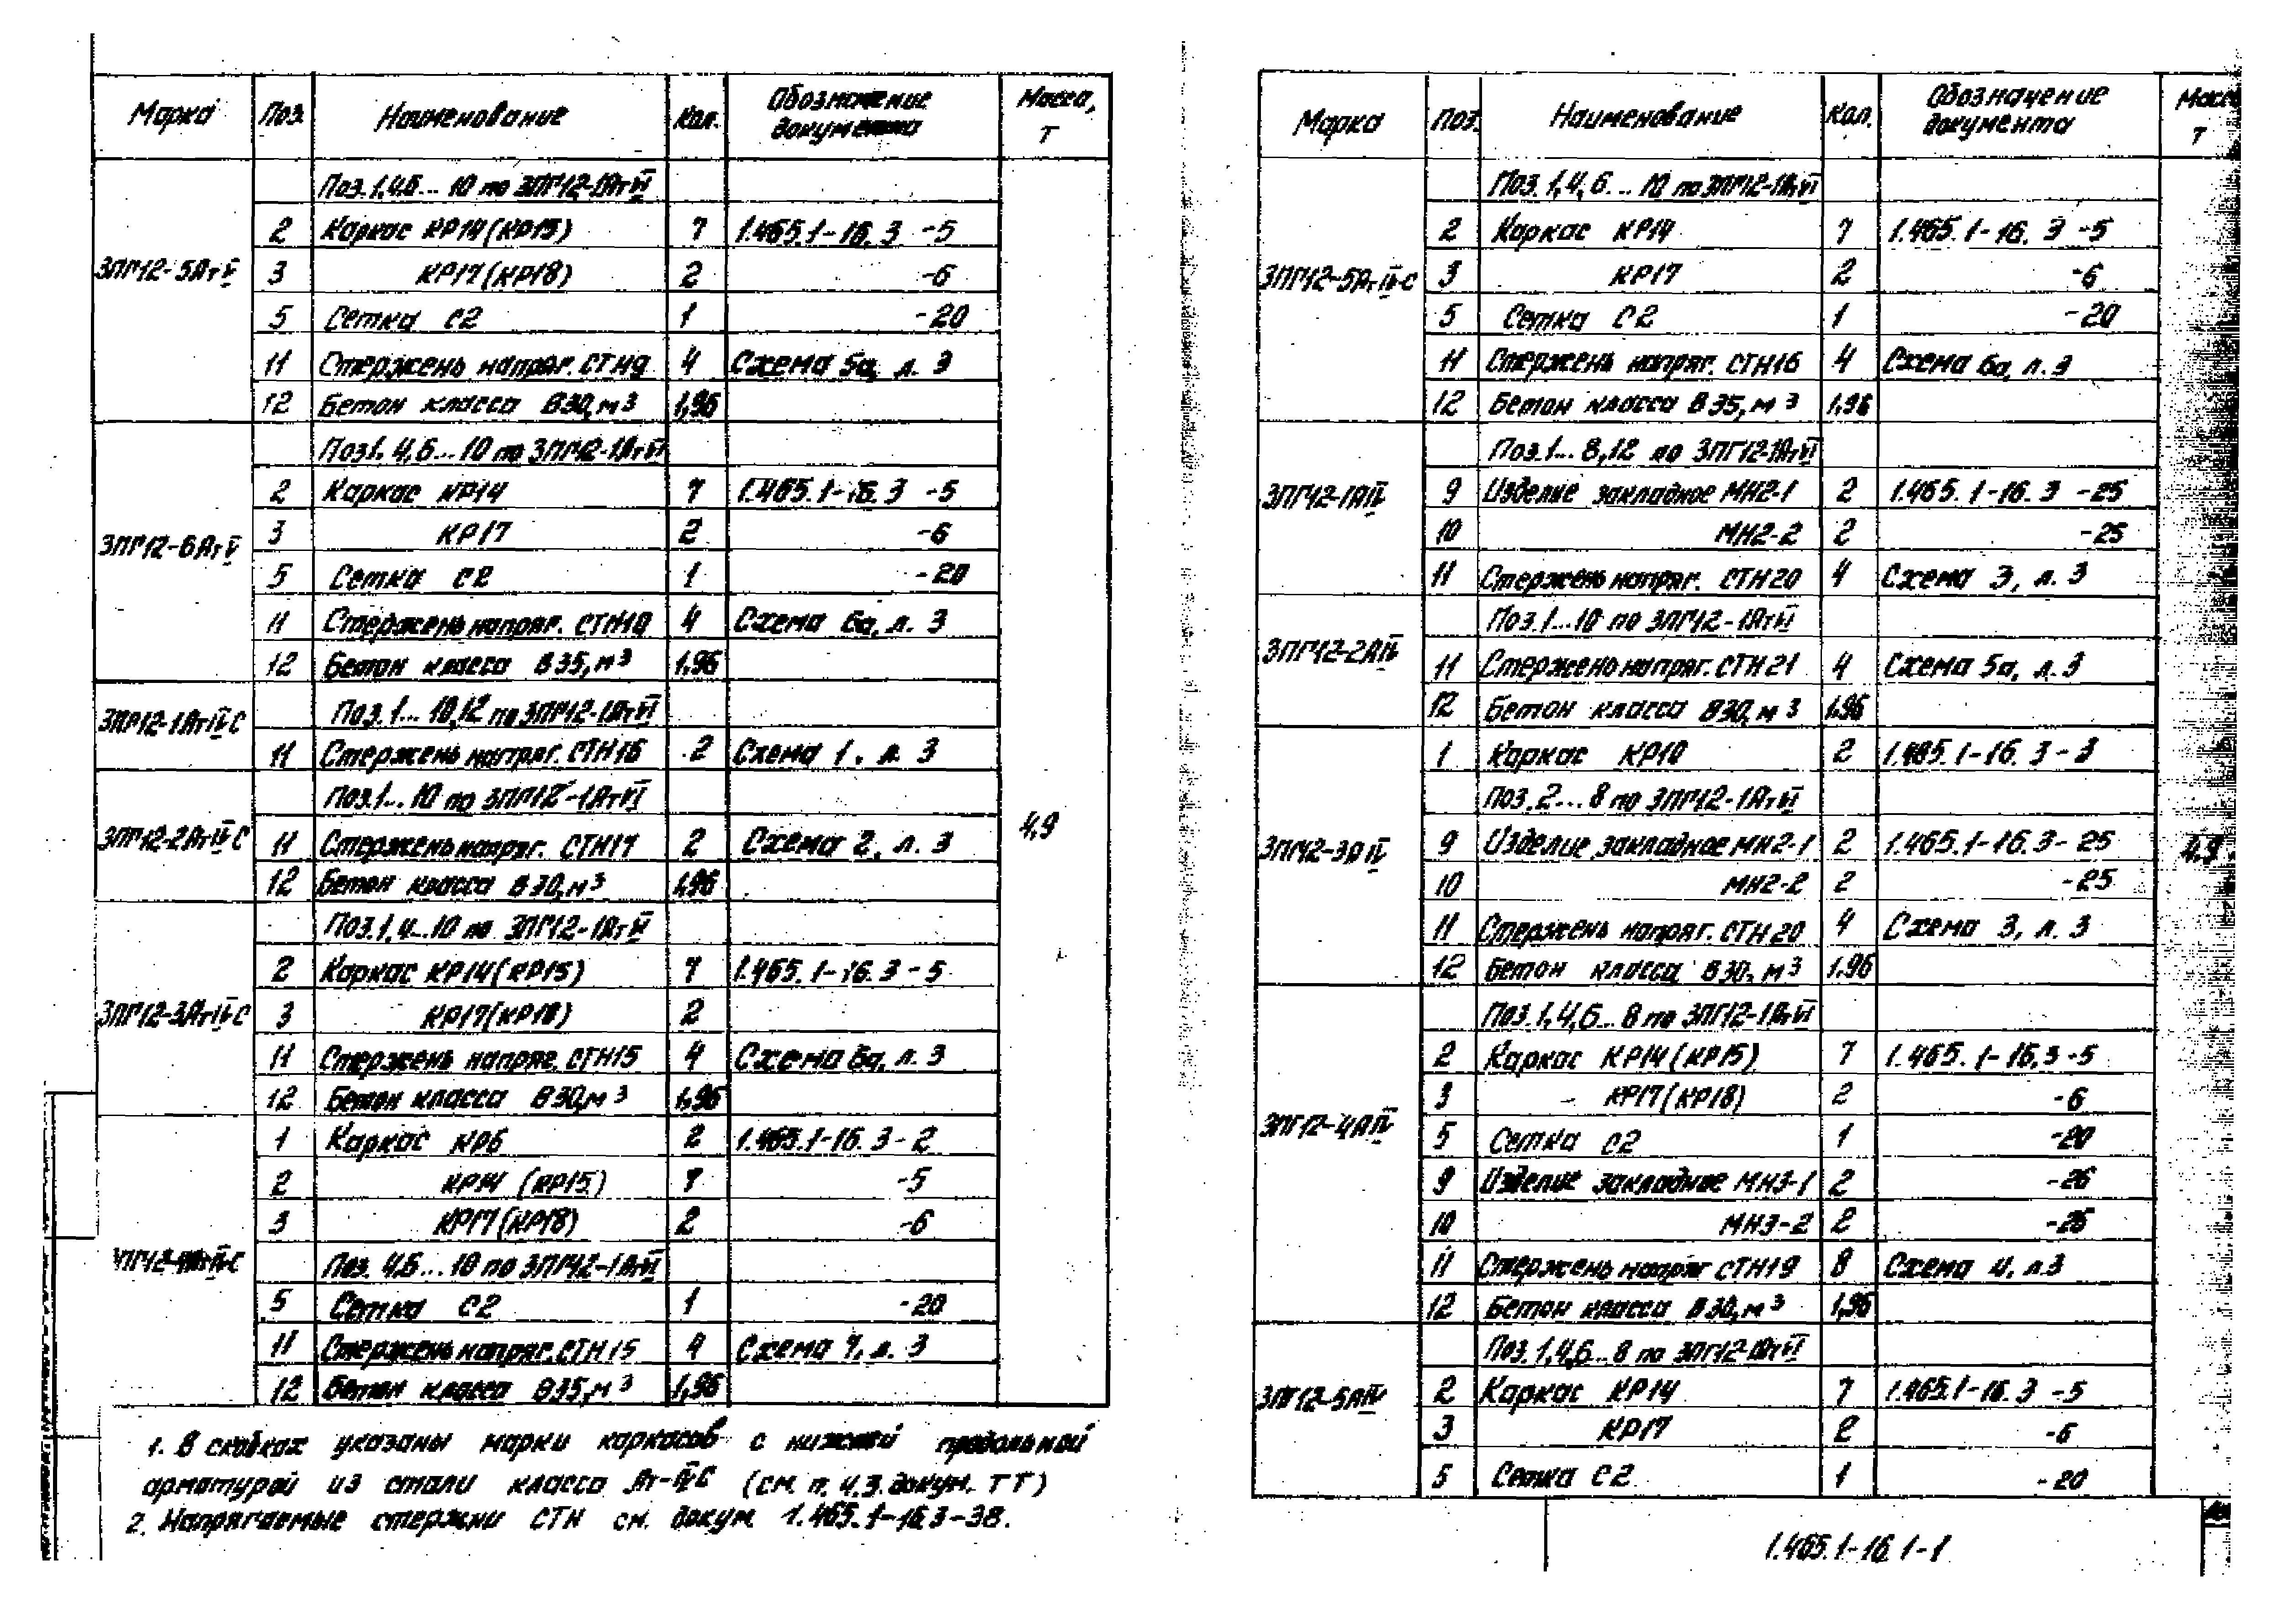 Марка Поз. Наименование Кол. Обозначение документа Масса, т
Поз. 1,4,6... 10 по 3ПГ12-1АтVI
3ПГ12-5АтV
2 Каркас КР14(КР15) 7 1.465.1-16.3 -5
3 КР17(КР18) 2 -6
5 Сетка С2 1 -20
11 Стержень напряг. СТН9 4 Схема 5а, л. 3
12 Бетон класса В30, м3 1,96
Поз. 1, 4,6... 10 по 3ПГ12-1АтVI
3ПГ12-6АтV
2 Каркас КР14 7 1.465.1-16.3 -5
3 КР17 2 -6
5 Сетка С2 1 -20
11 Стержень напряг. 4 Схема 6а, л. 3
12 Бетон класса В35, м3 1,96
3ПГ12-1АтIVС
Поз. 1... 10,12 по 3ПГ12-1АтVI
11 Стержень напряг. СТН16 2 Схема 1, л. 3
3ПГ12-2АтIVС
Поз. 1... 10 по 3ПГ12-1АтVI
11 Стержень напряг. СТН17 2 Схема 2, л. 3
12 Бетон класса В30, м3 1,96
4,9
3ПГ12-3АтIVС
Поз. 1,4...10 по 3ПГ12-1АтVI
2 Каркас КР14(КР15) 7 1.465.1-16.3 -5
3 КР17(КР18) 2
11 Стержень напряг. СТН15 4 Схема 6а, л. 3
12 Бетон класса В30, м3 1,96
1 Каркас КР6 2 1.465.1-16.3-2
2 КР14 (КР15) 7 -5
3 КР17(КР18) 2 -6
Поз. 4,6... 10 по 3ПГ12-1АтVI
5 Сетка С2 1 -20
11 Стержень напряг. СТН15 4 Схема 7, л. 3
12 Бетон класса В35, м3 1,96
1. В скобках указаны марки каркасов с нижней продольной
арматурой из стали класса Ат-IVС (см. п. 4.3. докум. ТТ)
2. Напрягаемые стержни СТН см. докум. 1.465.1-16.3-38.
Марка Поз. Наименование Кол. Обозначение документа Масса т
Поз. 1,4,6... 10 по 3ПГ12-1АтVI
3ПГ12-5АтIVС
2 Каркас КР14 7 1.465.1-16.3 -5
3 КР17 2 -6
5 Сетка С2 1 -20
11 Стержень напряг. СТН16 4 Схема 6а, л. 3
12 Бетон класса В35, м3 1,96
Поз. 1... 8,12 по 3ПГ12-1АтVI
3ПГ12-1АIV
9 Изделие закладное МН2-1 2 1.465.1-16.3 -25
10 МН2-2 2 -25
11 Стержень напряг. СТН20 4 Схема 3, л. 3
3ПГ12-2АIV
Поз. 1...10 по 3ПГ12-1АтVI
11 Стержень напряг. СТН21 4 Схема 5а, л. 3
12 Бетон класса В30, м3 1,96
3ПГ12-3АIV
1 Каркас КР10 2 1.465.1-16.3-3
Поз. 2... 8 по 3ПГ12-1АтVI
9 Изделие закладное МН2-1 2 1.465.1-16.3-25
10 МН2-2 2 -25
11 Стержень напряг. СТН20 4 Схема 3, л. 3
12 Бетон класса В30, м3 1,96
4,9
Поз. 1,4,6... 8 по 3ПГ12-1АтVI
3ПГ12-4АIV
2 Каркас КР14(КР15) 7 1.465.1-16.3-5
3 КР17(КР18) 2 -6
5 Сетка С2 1 -20
9 Изделие закладное МН3-1 2 -26
10 МН3-2 2 -26
11 Стержень напряг СТН19 8 Схема 4, л.3
12 Бетон класса В30, м3 1,96
Поз. 1,4,6... 8 по 3ПГ12-1АтVI
3ПГ12-5АIV
2 Каркас КР14 7 1.465.1-16.3 -5
3 КР17 2 -6
5 Сетка С2 1 -20
1.465.1-16.1-1